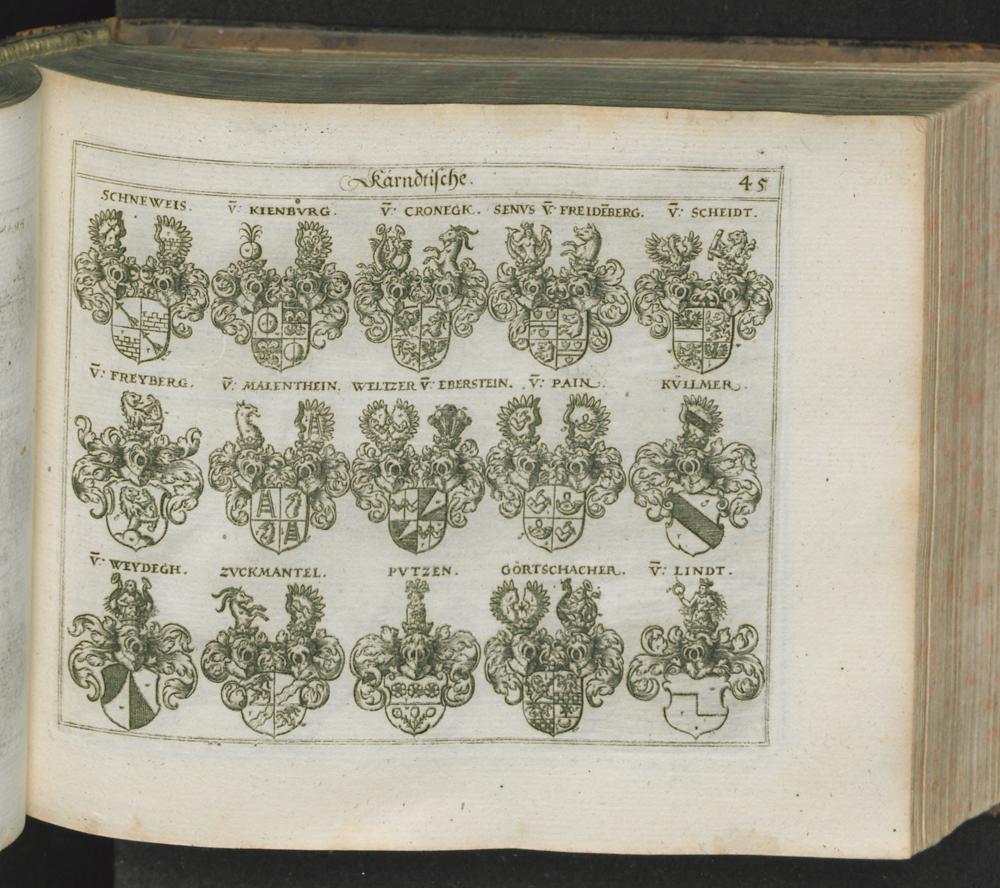 Kärndtische.
45
SCHNEWEIS. V̄: KIENBVRG. V̄: CRONEGK. SENVS V̄: FREIDĒBERG. V̄: SCHEIDT.
V̄: FREYBERG. V̄: MALENTHEIN. WELTZER V̄: EBERSTEIN. V̄: PAIN. KÜLLMER.
V̄: WEYDEGH. ZVCKMANTEL. PVTZEN. GÖRTSCHACHER. V̄: LINDT.